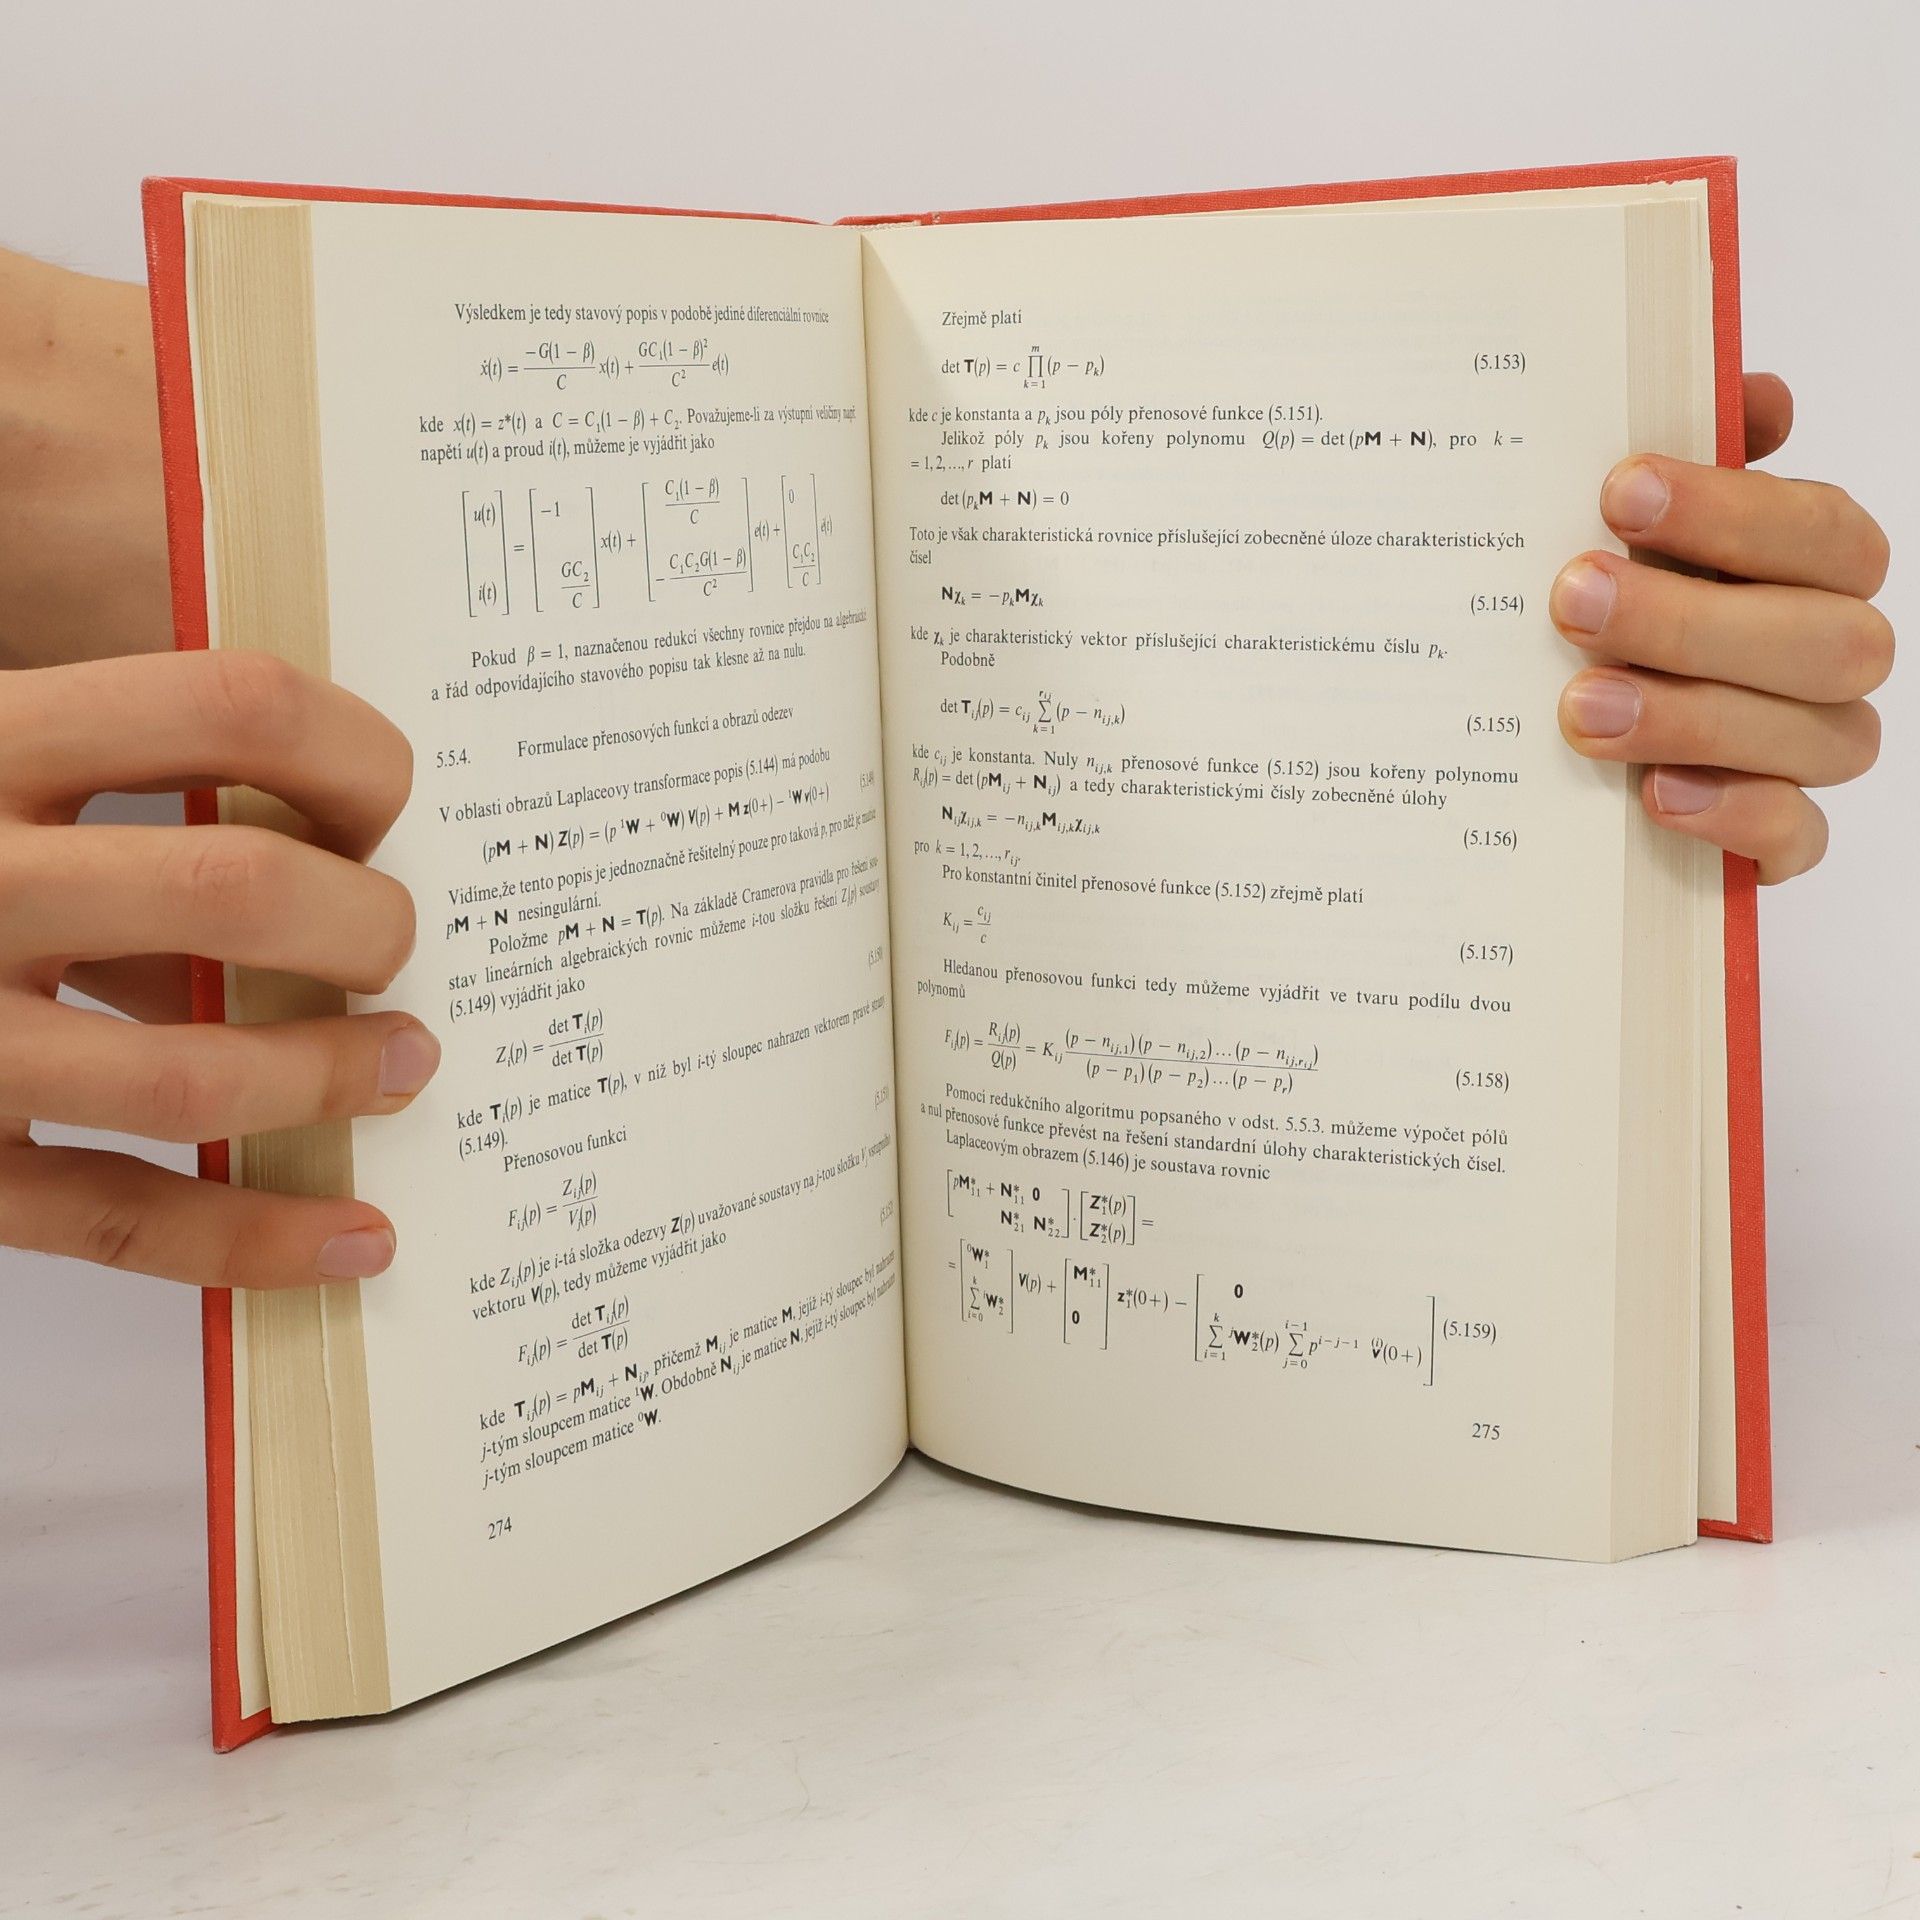 Výsledkem je tedy stavový popis v podobě jediné diferenciální rovnice
ẋ(t) = −G(1 − β)/C x(t) + GC₁(1 − β)²/C² e(t)
kde x(t) = z*(t) a C = C₁(1 − β) + C₂. Považujeme-li za výstupní veličiny např.
napětí u(t) a proud i(t), můžeme je vyjádřit jako
[u(t); i(t)] = [−1; GC₂/C] x(t) + [C₁(1 − β)/C; −C₁C₂G(1 − β)/C²] e(t) + [0; C₁C₂/C] ė(t)
Pokud β = 1, naznačenou redukcí všechny rovnice přejdou na algebraické
a řád odpovídajícího stavového popisu tak klesne až na nulu.
5.5.4. Formulace přenosových funkcí a obrazů odezev
V oblasti obrazů Laplaceovy transformace popis (5.144) má podobu
(pM + N) Z(p) = (p ¹W + ⁰W) V(p) + M z(0+) − ¹W v(0+) (5.149)
Vidíme,že tento popis je jednoznačně řešitelný pouze pro taková p, pro něž je matice
pM + N nesingulární.
Položme pM + N = T(p). Na základě Cramerova pravidla pro řešení sou-
stav lineárních algebraických rovnic můžeme i-tou složku řešení Zᵢ(p) soustavy
(5.149) vyjádřit jako
Zᵢ(p) = det Tᵢ(p)/det T(p) (5.150)
kde Tᵢ(p) je matice T(p), v níž byl i-tý sloupec nahrazen vektorem pravé strany
(5.149).
Přenosovou funkci
Fᵢⱼ(p) = Zᵢⱼ(p)/Vⱼ(p) (5.151)
kde Zᵢⱼ(p) je i-tá složka odezvy Z(p) uvažované soustavy na j-tou složku Vⱼ vstupního
vektoru V(p), tedy můžeme vyjádřit jako
Fᵢⱼ(p) = det Tᵢⱼ(p)/det T(p) (5.152)
kde Tᵢⱼ(p) = pMᵢⱼ + Nᵢⱼ, přičemž Mᵢⱼ je matice M, jejíž i-tý sloupec byl nahrazen
j-tým sloupcem matice ¹W. Obdobně Nᵢⱼ je matice N, jejíž i-tý sloupec byl nahrazen
j-tým sloupcem matice ⁰W.
274
Zřejmě platí
det T(p) = c ∏_{k=1}^{m} (p − pₖ) (5.153)
kde c je konstanta a pₖ jsou póly přenosové funkce (5.151).
Jelikož póly pₖ jsou kořeny polynomu Q(p) = det (pM + N), pro k =
= 1, 2, ..., r platí
det (pₖM + N) = 0
Toto je však charakteristická rovnice příslušející zobecněné úloze charakteristických
čísel
Nχₖ = −pₖMχₖ (5.154)
kde χₖ je charakteristický vektor příslušející charakteristickému číslu pₖ.
Podobně
det Tᵢⱼ(p) = cᵢⱼ ∑_{k=1}^{rᵢⱼ} (p − nᵢⱼ,ₖ) (5.155)
kde cᵢⱼ je konstanta. Nuly nᵢⱼ,ₖ přenosové funkce (5.152) jsou kořeny polynomu
Rᵢⱼ(p) = det (pMᵢⱼ + Nᵢⱼ) a tedy charakteristickými čísly zobecněné úlohy
Nᵢⱼχᵢⱼ,ₖ = −nᵢⱼ,ₖMᵢⱼ,ₖχᵢⱼ,ₖ (5.156)
pro k = 1, 2, ..., rᵢⱼ.
Pro konstantní činitel přenosové funkce (5.152) zřejmě platí
Kᵢⱼ = cᵢⱼ/c (5.157)
Hledanou přenosovou funkci tedy můžeme vyjádřit ve tvaru podílu dvou
polynomů
Fᵢⱼ(p) = Rᵢⱼ(p)/Q(p) = Kᵢⱼ (p − nᵢⱼ,₁)(p − nᵢⱼ,₂)...(p − nᵢⱼ,rᵢⱼ)/(p − p₁)(p − p₂)...(p − pᵣ) (5.158)
Pomocí redukčního algoritmu popsaného v odst. 5.5.3. můžeme výpočet pólů
a nul přenosové funkce převést na řešení standardní úlohy charakteristických čísel.
Laplaceovým obrazem (5.146) je soustava rovnic
[pM*₁₁ + N*₁₁ 0; N*₂₁ N*₂₂] · [Z*₁(p); Z*₂(p)] =
= [⁰W*₁; ∑_{i=0}^{k} ⁱW*₂] V(p) + [M*₁₁; 0] z*₁(0+) − [0; ∑_{i=1}^{k} ʲW*₂(p) ∑_{j=0}^{i−1} p^{i−j−1} v⁽ⁱ⁾(0+)] (5.159)
275